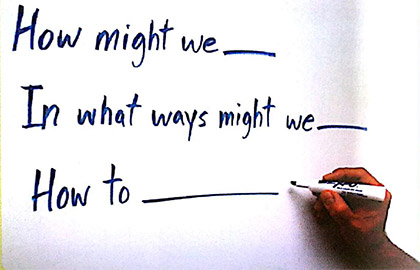 How might we ___
In what ways might we ___
How to ___